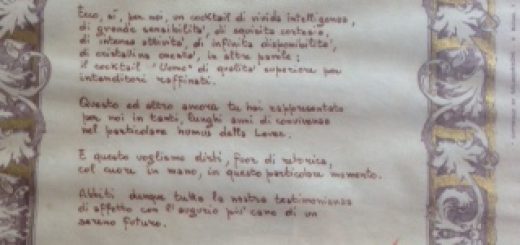 Ecco, sì, per noi, un cocktail di vivida intelligenza,
di grande sensibilità, di squisita cortesia,
di intensa attività, di infinita disponibilità,
di cristallina onestà, in altre parole:
il cocktail "Uomo" di qualità superiore per
intenditori raffinati.
Questo ed altro ancora tu hai rappresentato
per noi in tanti, lunghi anni di convivenza
nel particolare humus della
E questo vogliamo dirti, fuor di retorica,
col cuore in mano, in questo particolare momento.
Abbiti dunque tutta la nostra testimonianza
di affetto con l'augurio più caro di un
sereno futuro.